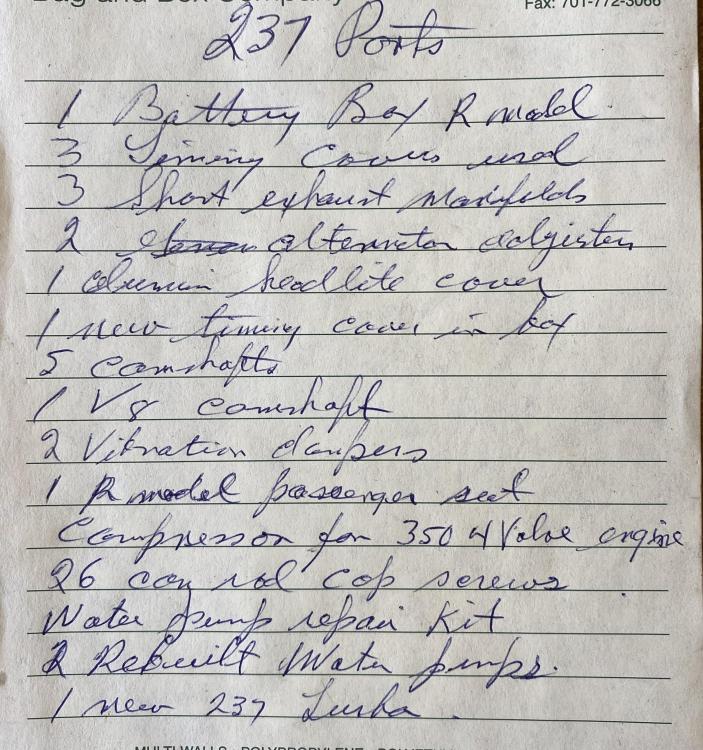 Bag and Box Company
Fax: 701-772-3066
237 Parts
1 Battery Box R model
3 Timing Covers used
3 Short exhaust Manifolds
2 alternator adjisters
1 alumin headlite cover
1 new timing cover in box
5 camshafts
1 V8 camshaft
2 Vibration dampers
1 R model passenger seat
Compressor for 350 4 Valve engine
26 con rod cap screws
Water pump repair Kit
2 Rebuilt Water pumps.
1 new 237 Turbo.
MULTI-WALLS POLYPROPYLENE